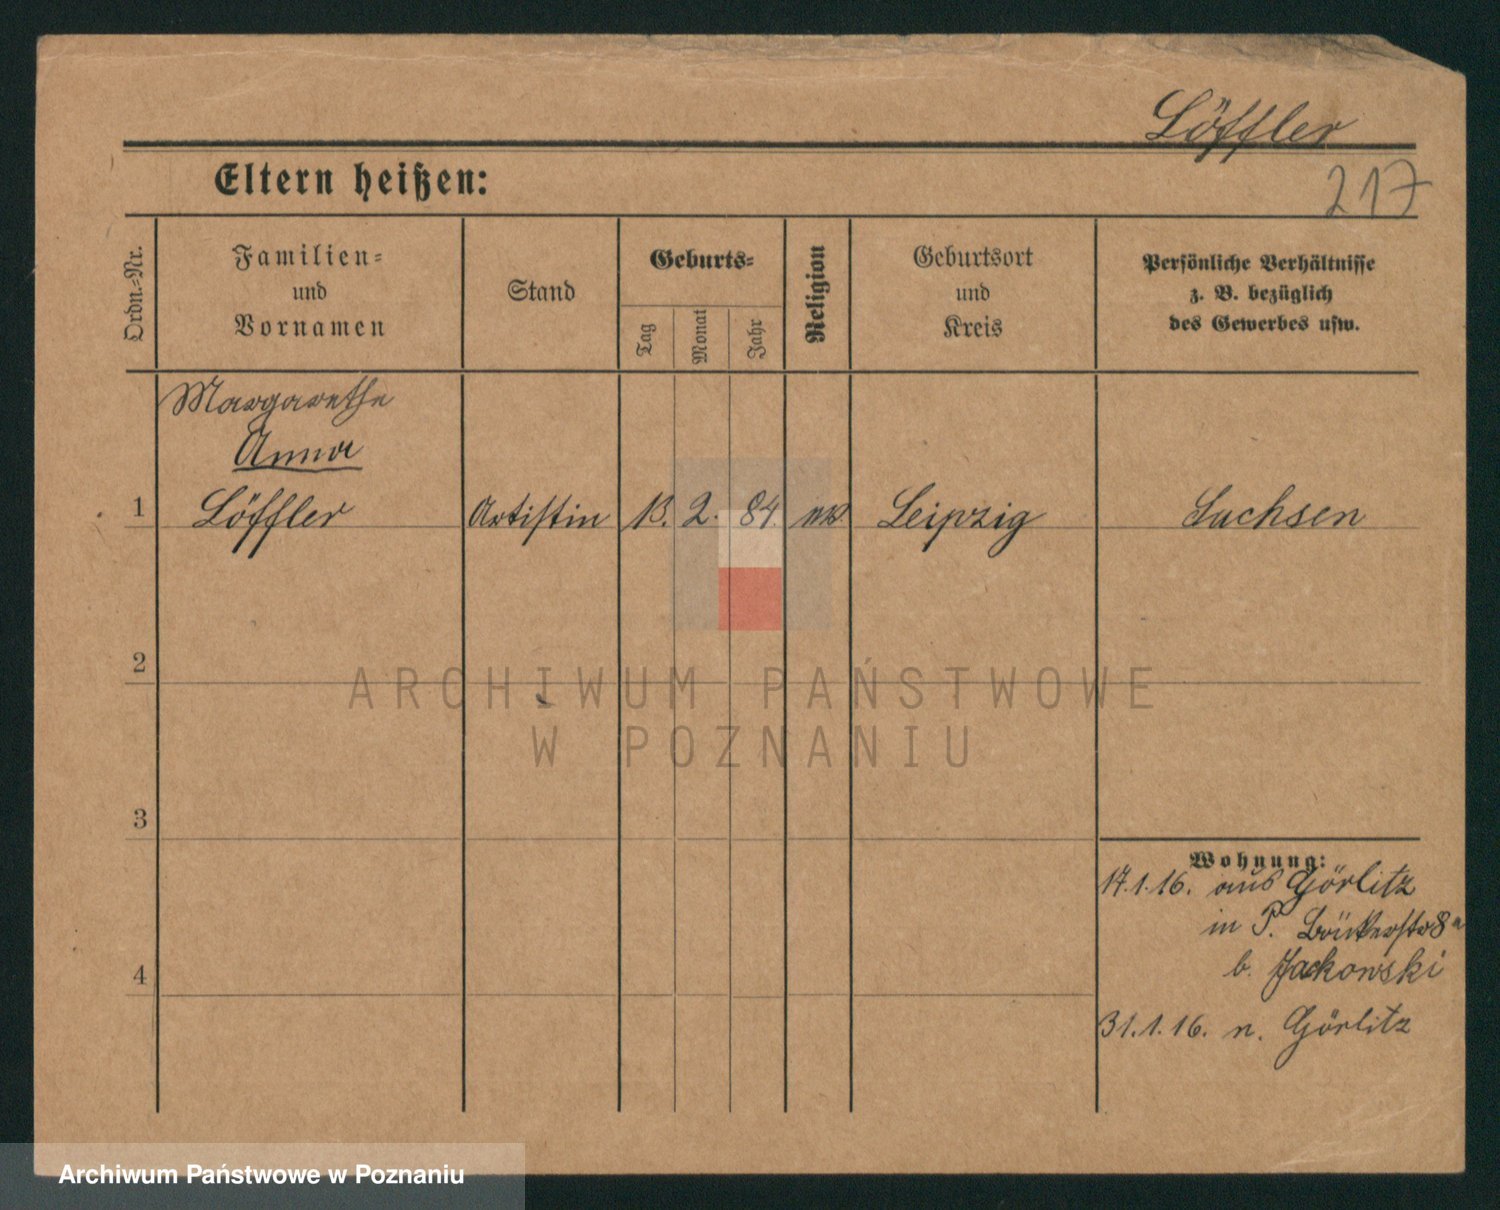 Löffler
217
Eltern heißen:
Ordn.=Nr.
Familien=
und
Vornamen
Stand
Geburts=
Tag
Monat
Jahr
Religion
Geburtsort
und
Kreis
Persönliche Verhältnisse
z. B. bezüglich
des Gewerbes usw.
Margarethe
Anna
1 Löffler Artistin 13. 2. 84. Leipzig Sachsen
2
ARCHIWUM PAŃSTWOWE
W POZNANIU
3
4
Wohnung:
17.1.16. aus Görlitz
in P. 8a
b. Jackowski
31.1.16. n. Görlitz
Archiwum Państwowe w Poznaniu